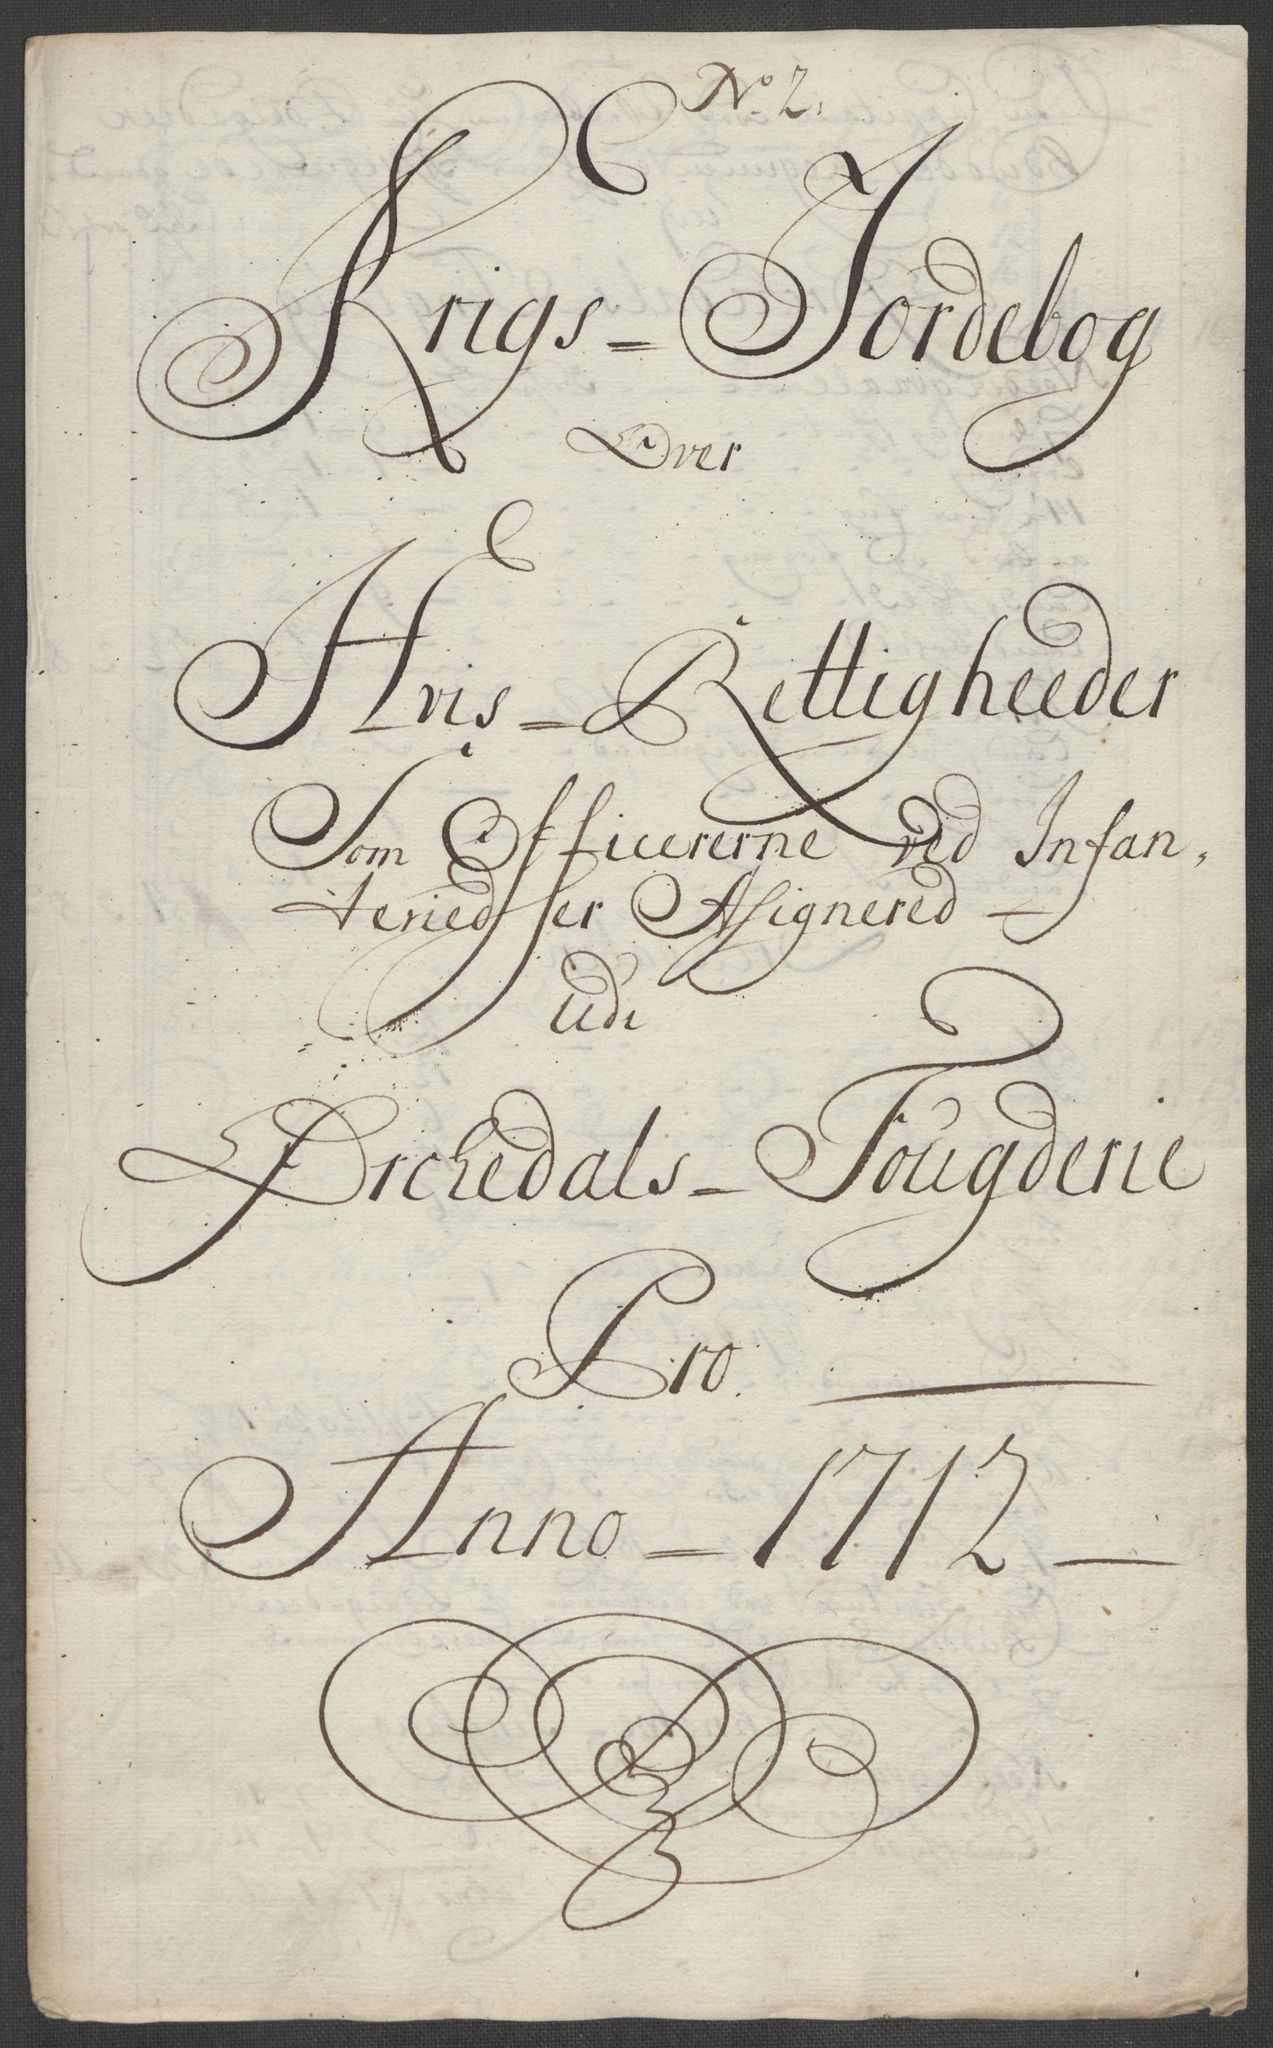 No 2.
Krigs = Jordebog
Over
Hvis = Rettigheeder
Som Officererne ved Infan,
teried er Assignered
Udi
Orchedals = Fougderie
Pro.
Anno = 1712